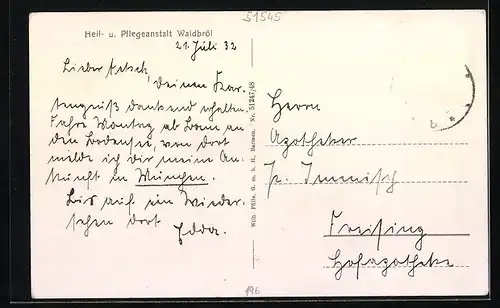 51545
Heil- u. Pflegeanstalt Waldbröl
21. Juli 32
Lieber
Deinen Kar-
tengruß dankend erhalten
Fahre Montag ab Bonn an
den Bodensee, von dort
melde ich dir meine An-
kunft in München.
Bis auf ein Wieder-
sehen dort
Edda.
Wilh. Fülle, G. m. b. H., Barmen. Nr. 51247/48
Herrn
Apotheker
Freising
Hofapotheke
196